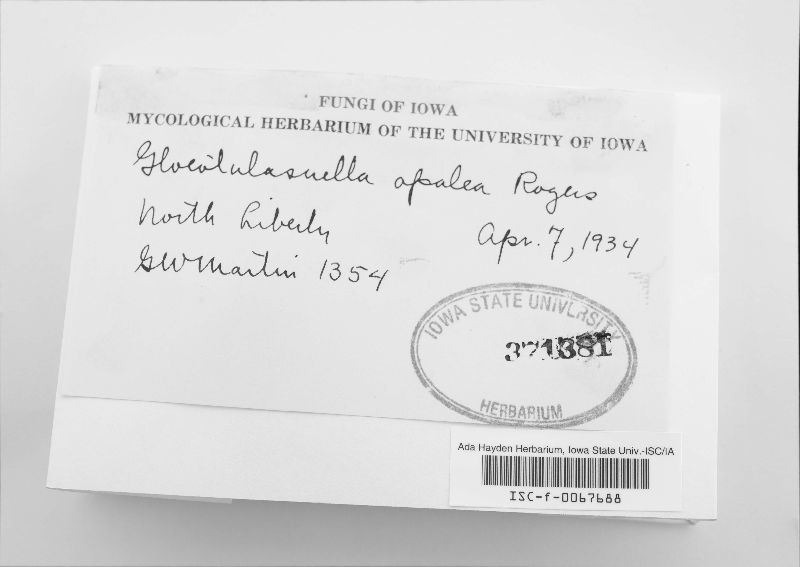 FUNGI OF IOWA
MYCOLOGICAL HERBARIUM OF THE UNIVERSITY OF IOWA
Gloeotulasnella opalea Rogers
North Liberty
Apr. 7, 1934
GWMartin 1354
IOWA STATE UNIVERSITY
371381
HERBARIUM
Ada Hayden Herbarium, Iowa State Univ.-ISC/IA
ISC-f-0067688